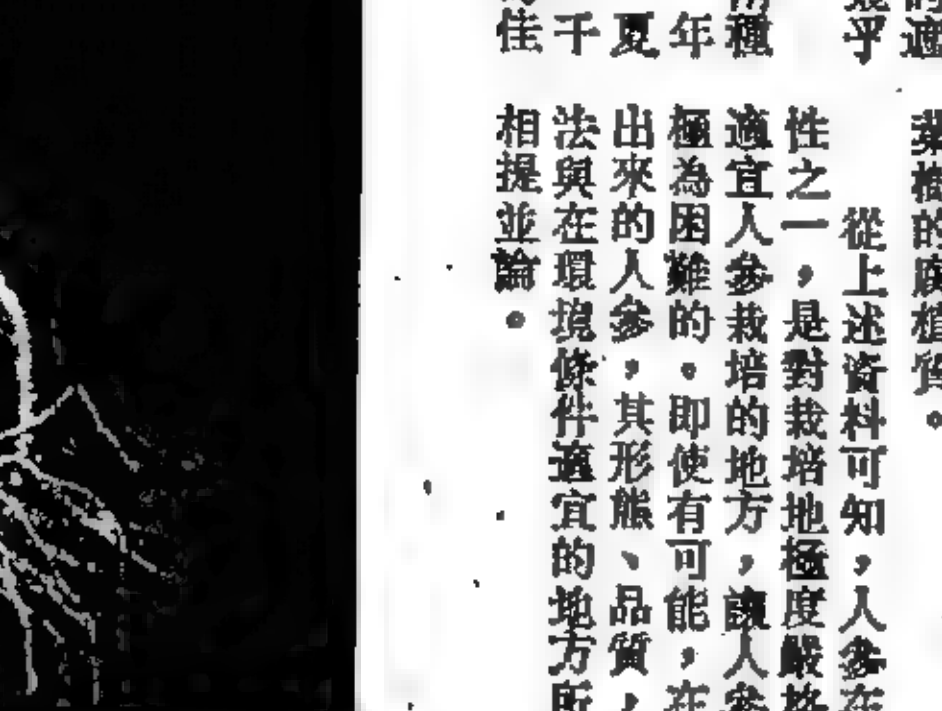 的適
幾乎
種
年
夏
千
佳
葉樹的腐植質。
從上述資料可知，人參在
性之一，是對栽培地極度嚴格
適宜人參栽培的地方，讓人參
極為困難的。即使有可能，在
出來的人參，其形態、品質，
法與在環境條件適宜的地方所
相提並論。